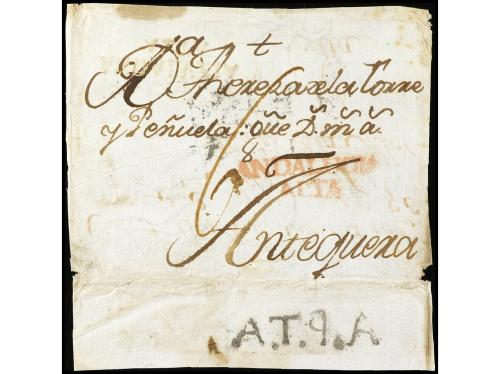 +
Dª Theresa de la Torre
y Peñuela: que Dˢ. mˢ. aˢ.
8
ANDALUCIA
ALTA
Antequera
A.P.T.A.